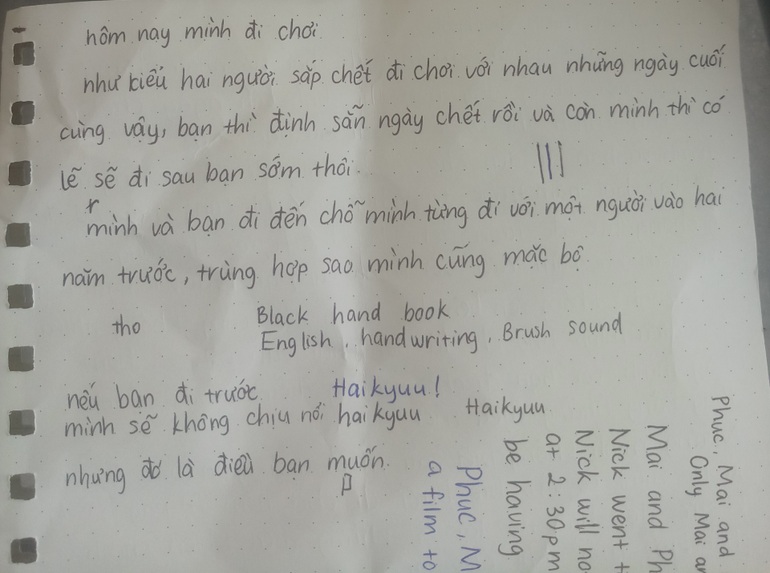 hôm nay mình đi chơi
như kiểu hai người sắp chết đi chơi với nhau những ngày cuối
cùng vậy, bạn thì định sẵn ngày chết rồi và còn mình thì có
lẽ sẽ đi sau bạn sớm thôi.
mình và bạn đi đến chỗ mình từng đi với một người vào hai
năm trước, trùng hợp sao mình cũng mặc bộ
tho
Black hand book
English, handwriting, Brush sound
nếu bạn đi trước
Haikyuu!
mình sẽ không chịu nổi haikyuu
Haikyuu
nhưng đó là điều bạn muốn.
Phuc, Mai and
Only Mai a
Mai and Ph
Nick went t
Nick will no
at 2:30pm
be having
Phuc, M
a film to